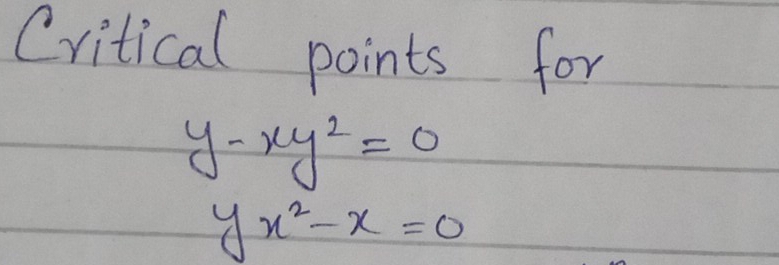 Critical points for
y - xy² = 0
yx² - x = 0